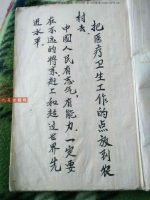 把医疗卫生工作的点放到农
村去。
中国人民有志气，有能力，一定要
在不远的将来赶上和超过世界先
进水平。